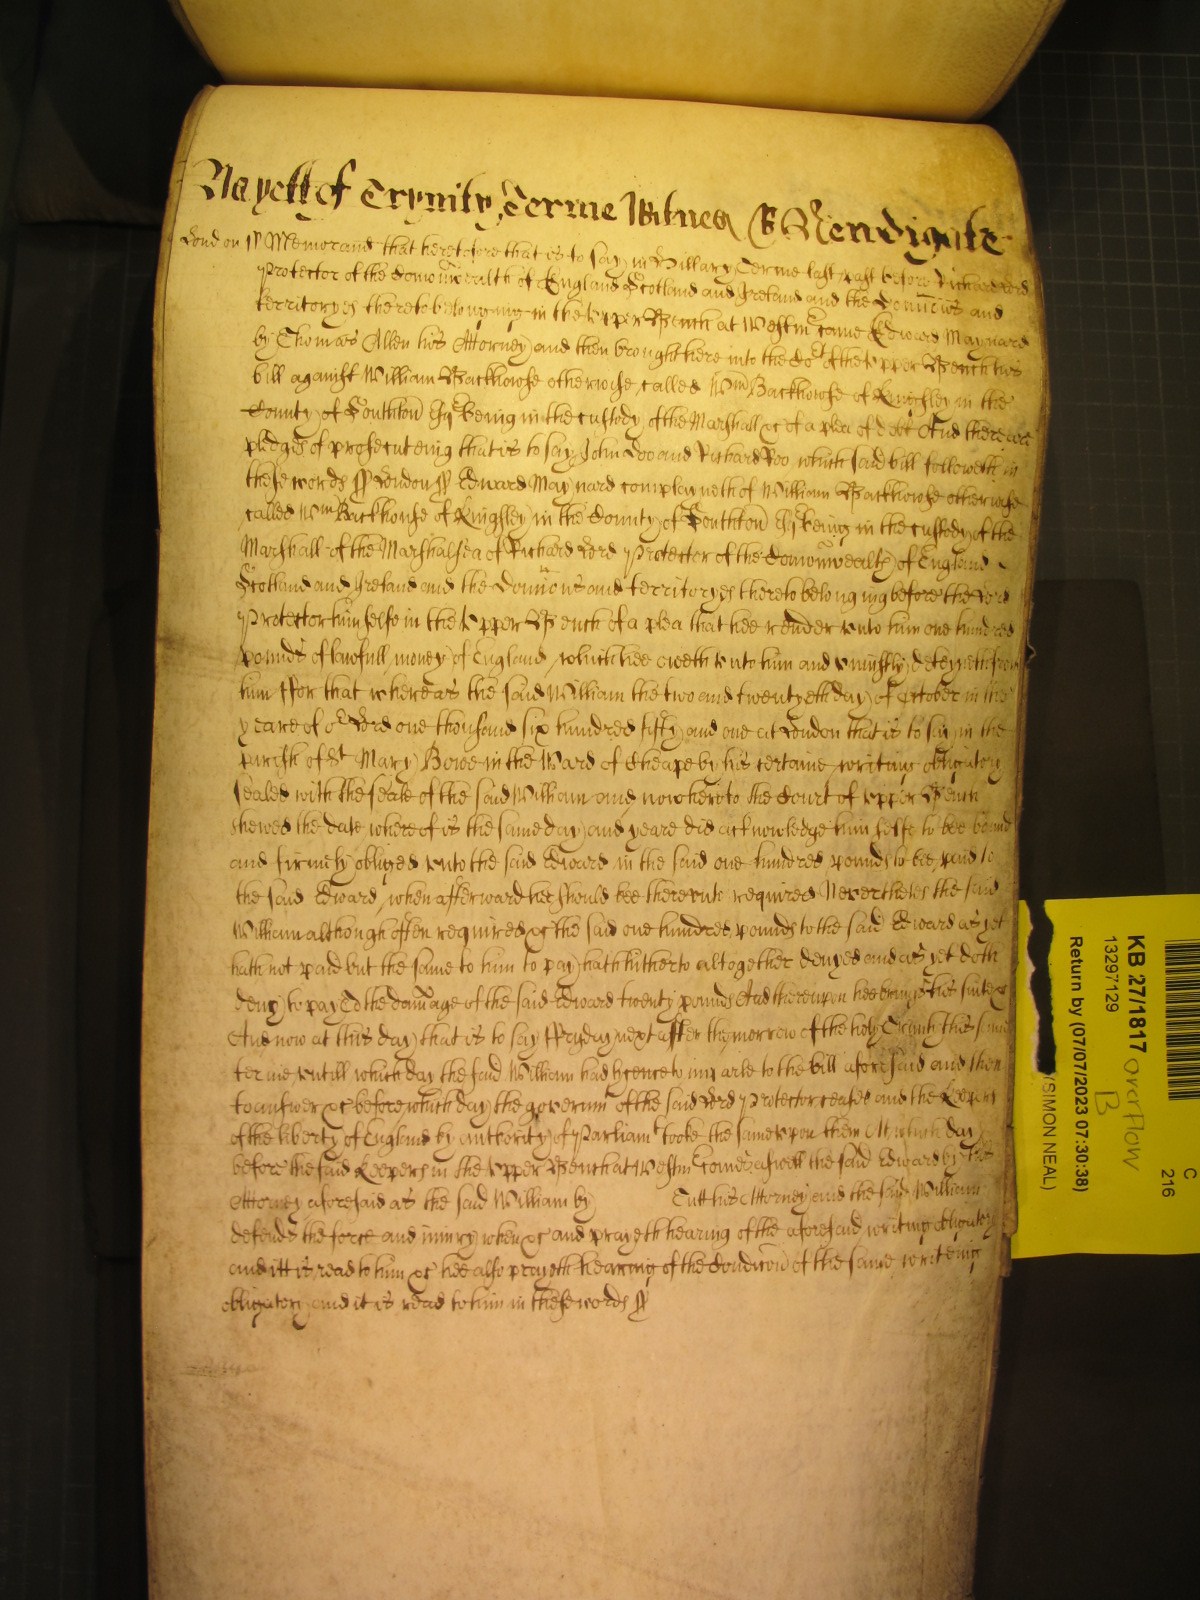 As yett of Trynity Terme Witnes R Newdigate
London ss Memorand that heretofore that is to say in Hillary Terme last past before Richard Lord
Protector of the Comonwealth of England Scotland and Ireland and the Dominions and
territoryes thereto belonging in the upper Bench at Westmr came Edward Maynard
by Thomas Allen his Attorney and then brought here into the Cort of the upper Bench his
bill against William Backhowse otherwise called Wm Backhowse of Kingsley in the
County of Southton being in the custody of the Marshall &c of a plea of debt And there are
pledges of prosecuteing that is to say John Doo and Richard Roo which said bill followeth in
these words ss London ss Edward Maynard complayneth of William Backhowse otherwise
called Wm Backhouse of Kingsley in the County of Southton being in the custody of the
Marshall of the Marshalsea of Richard Lord Protector of the Comonwealth of England
Scotland and Ireland and the Dominions and territoryes thereto belonging before the Lord
Protector himselfe in the upper Bench of a plea that hee render unto him one hundred
pounds of lawfull money of England which hee oweth unto him and uniustly deteyneth from
him ffor that whereas the said William the two and twentyeth day of October in the
yeare of or Lord one thousand six hundred fifty and one at London that is to say in the
parish of St Mary Bowe in the Ward of Cheape by his certaine writing obligatory
sealed with the seale of the said William and now here to the Court of upper Bench
shewed the date whereof is the same day and yeare did acknowledge himselfe to bee bound
and firmely obliged unto the said Edward in the said one hundred pounds to bee paid to
the said Edward when afterward hee should bee thereunto required Neverthelesse the said
William although often required &c the said one hundred pounds to the said Edward as yet
hath not paid but the same to him to pay hath hitherto altogether denyed and as yet doth
deny to pay To the damage of the said Edward twenty pounds And thereupon hee brings his suite &c
And now at this day that is to say ffryday next after the morrow of the holy Trinity this same
terme untill which day the said William had lycence to imparle to the bill aforesaid and then
to answer &c before which day the governmt of the said Lord Protector ceased and the Keepers
of the liberty of England by authority of Parliamt tooke the same upon them Att which day
before the said Keepers in the upper Bench at Westmr come aswell the said Edward by his
Attorney aforesaid as the said William by Cutt his Attorney and the said William
defends the force and iniury when &c and prayeth hearing of the aforesaid writing obligatory
and itt is read to him &c hee also prayeth hearing of the Condicon of the same writeing
obligatory and it is read to him in these words ss
KB 27/1817 overflow
B
13297129
Return by (07/07/2023 07:30:38)
(SIMON NEAL)
C
216